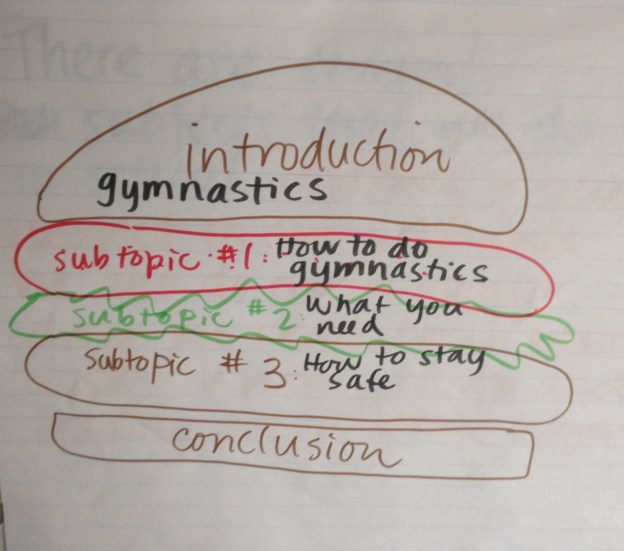 There are
introduction
gymnastics
subtopic #1: How to do
gymnastics
subtopic #2: What you
need
subtopic #3: How to stay
safe
conclusion